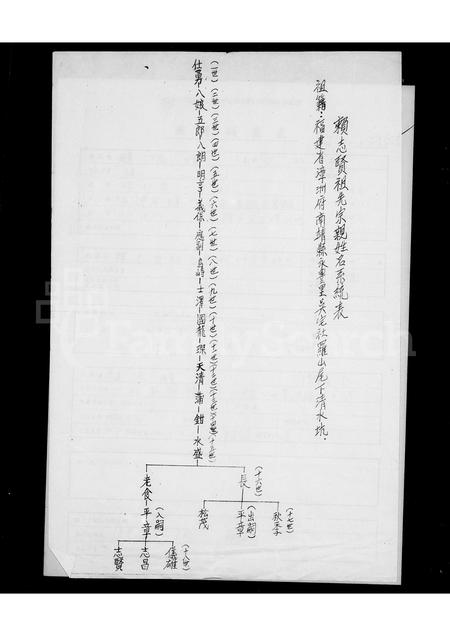 賴志賢祖先宗親姓名系統表
祖籍:福建省漳州府南靖縣永豐里吳宅社羅山尾下清水坑.
(一世)(二世)(三世)(四世)(五世)(六世)(七世)(八世)(九世)(十世)(十一世)(十二世)(十三世)(十四世)(十五世)
仕勇-八娘-五郎-八朗-明亨-義保-士澤-國龍-琛-天清-蒲-鉗-水盛
(十六世)
長
老食-平章(入嗣)
(十七世)
秋季
平章(出嗣)
松茂
(十八世)
儀雄
志昌
志賢
FamilySearch